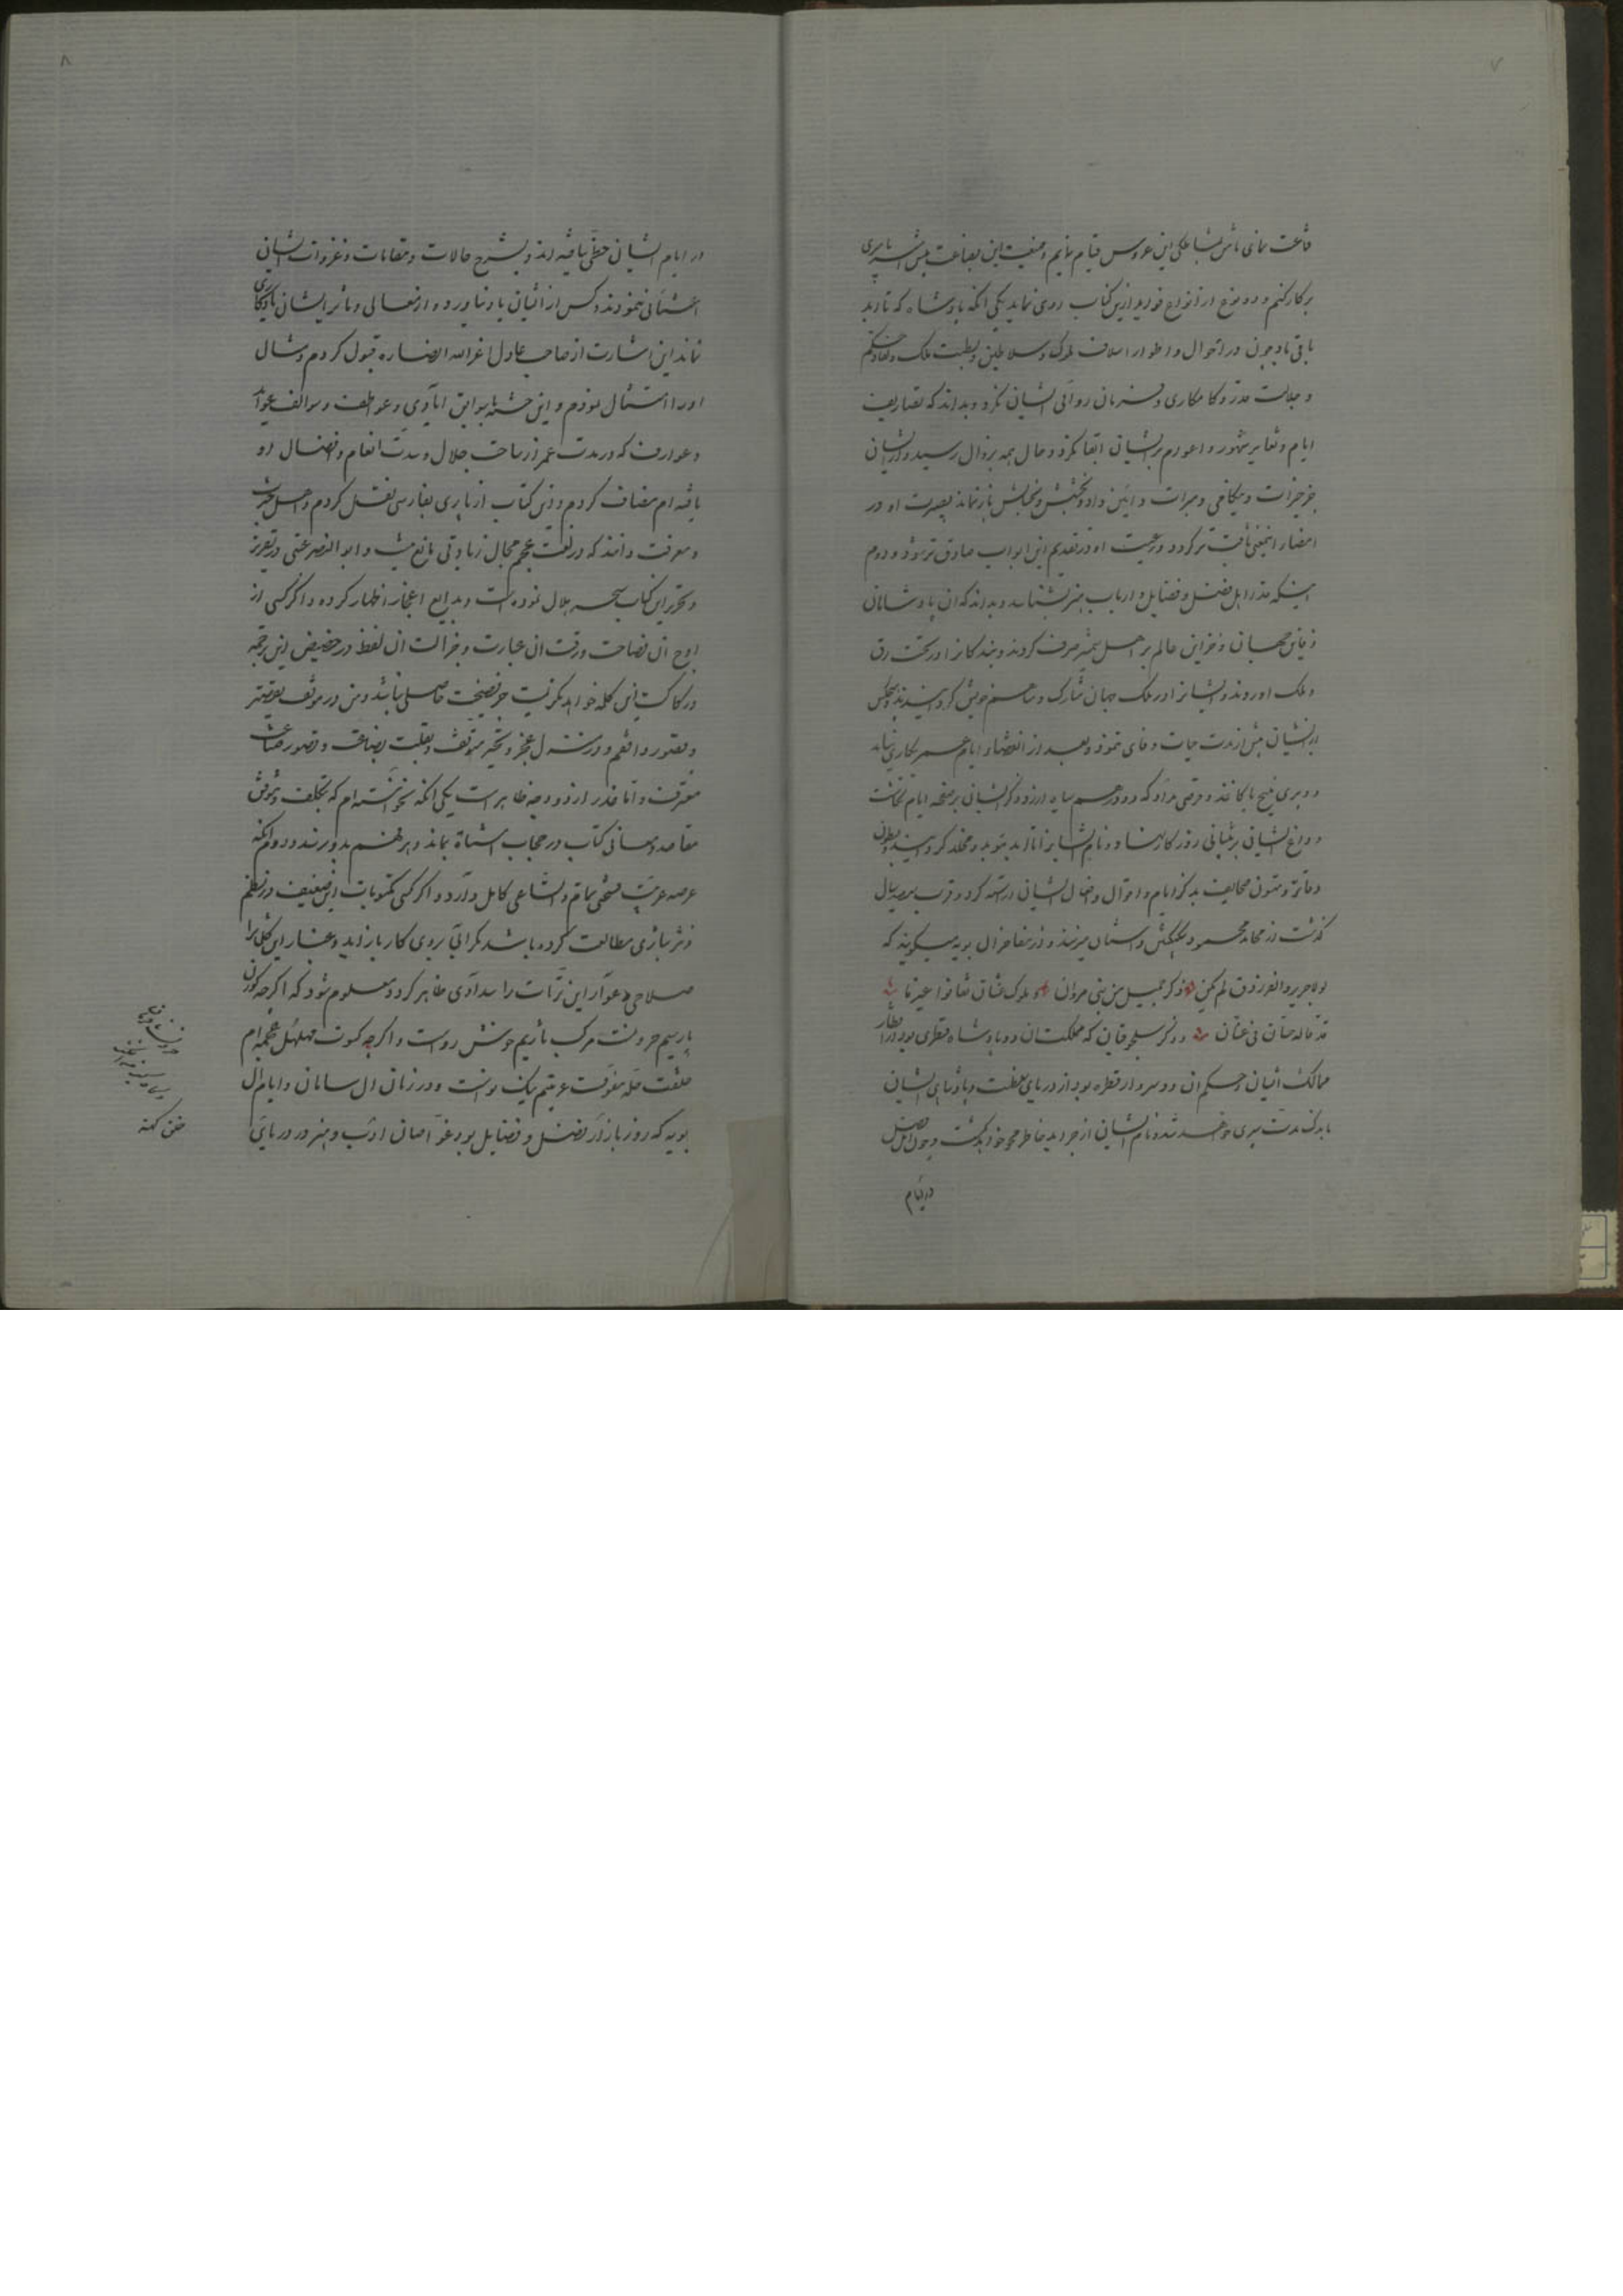 ۷
قناعت نمای باش بمشاطگی این عروس قیام نمایم و منقبت این بضاعت پیش
بر کار کنم و دو نوع از انواع فواید ازین کتاب روی نماید یکی آنکه پادشاه که تا ابد
باقی باد چون در احوال و اطوار اسلاف ملوک و سلاطین و بسطت ملک و نفاذ حکم
و جلالت قدر و کامکاری و فرمان روائی ایشان نکرد و بداند که تصاریف
ایام و تغایر شهور و اعوام بر ایشان ابقا نکرد و حال همه بزوال رسید و از ایشان
جز خیرات و نیکنامی و مبرات و آیین داد و بخشش و بخشایش باز نماند بصیرت او در
امضاء این معنی ثاقب تر گردد و رغبت او در تقدیم این ابواب صادق تر شود و دوم
اینکه قدر اهل فضل و فضایل و ارباب هنر بشناسد و بداند که آن پادشاهانی
دفاین جهان و خزاین عالم بر اهل هنر صرف کردند و بندکانرا در تحت رق
و ملک آوردند و ایشانرا در ملک جهان مشارک و مساهم خویش کردانیدند هیچکس
از ایشان پیش از مدت حیات وفای ننمود و بعد از انقضاء ایام عمر بکاری نیامد
و دبیری بنج تا کاغذ و قرصی مداد که دو درهم سیاه ارزد ذکر ایشان بر صفحه ایام نکاشت
و داغ ایشان بر پیشانی روزکار نهاد و نام ایشانرا تا ابد مؤبد و مخلد کردانید و بطون
دفاتر و متون صحایف بذکر ایام و احوال و افعال ایشان آراسته کرد و قرب سیصد سال
گذشت از محامد محمود سبکتکین داستان میزنند و از مفاخر آل بویه میگویند که
لولا جریر والفرزدق لم یکن ذکر جمیل من بنی مروان و ملوک غسان تفانوا غیر ما
قد قاله حسان فی غسان و ذکر سلجوقیان که مملکتشان دو پادشاه قطری بود از اقطار
ممالک ایشان و حکم آن دو سردار قطره بود از دریای عظمت و پادشاهی ایشان
باندک مدت سپری خواهد شد و نام ایشان از جراید خاطر محو خواهد گشت و چون اهل فضل
در ایام
۸
در ایام ایشان حظی نیافته اند و بشرح حالات و مقامات و غزوات ایشان
اعتنائی ننمودند و کس از ایشان یاد نیاورد و از معالی و مآثر ایشان یادگاری
نماند این اشارت از صاحب عادل اعز الله انصاره قبول کردم و مثال
او را امتثال نمودم و این حسنه با سوابق ایادی و عواطف و سوالف عواید
و عوارف که در مدت عمر از ساحت جلال و سدت انعام و افضال او
یافته ام مضاف کردم و این کتاب از تازی بفارسی نقل کردم و اهل خبرت
و معرفت دانند که در لغت عجم مجال زیادتی مانع نیست و ابو النصر عتبی در تعزیز
و تحریر این کتاب سحر حلال نموده است و بدایع اعجاز اظهار کرده و اگر کسی از
اوج آن فصاحت و رقت آن عبارت و جزالت آن لفظ در حضیض این ترجمه
و رکاکت این کلمه خواهد نکریست جز فضیحت حاصلی نباشد و من در موقف تقصیر
و قصور واقفم و در منزل عجز و تحیر متوقف و بقلت بضاعت و قصور صناعت
معترفت و اما عذر از دو وجه ظاهر است یکی آنکه نخواسته ام که بتکلف و تنوق
مقاصد و معانی کتاب در حجاب اشتباه بماند و هر فهم بدو نرسد و دوم آنکه
عرصه عربیت فسحتی تمام و اتساعی کامل دارد و اگر کسی مکتوبات این ضعیف در نظم
و نثر تازی مطالعت کرده باشد نکرانی بروی کار باز آید و عثار این کلمات را
صلاحی و عوار این ترهات را سدادی ظاهر کردد و معلوم شود که اگرچه کودن
پارسیم حرونست مرکب تازیم خوش رو است و اگرچه کسوت مهلهل عجمیم
خلقست حله مفوفت عربیتم نیک نو است و در زمان آل سامان و ایام آل
بویه که روز بازار فضل و فضایل بود غواصان ادب و هنر در دریای